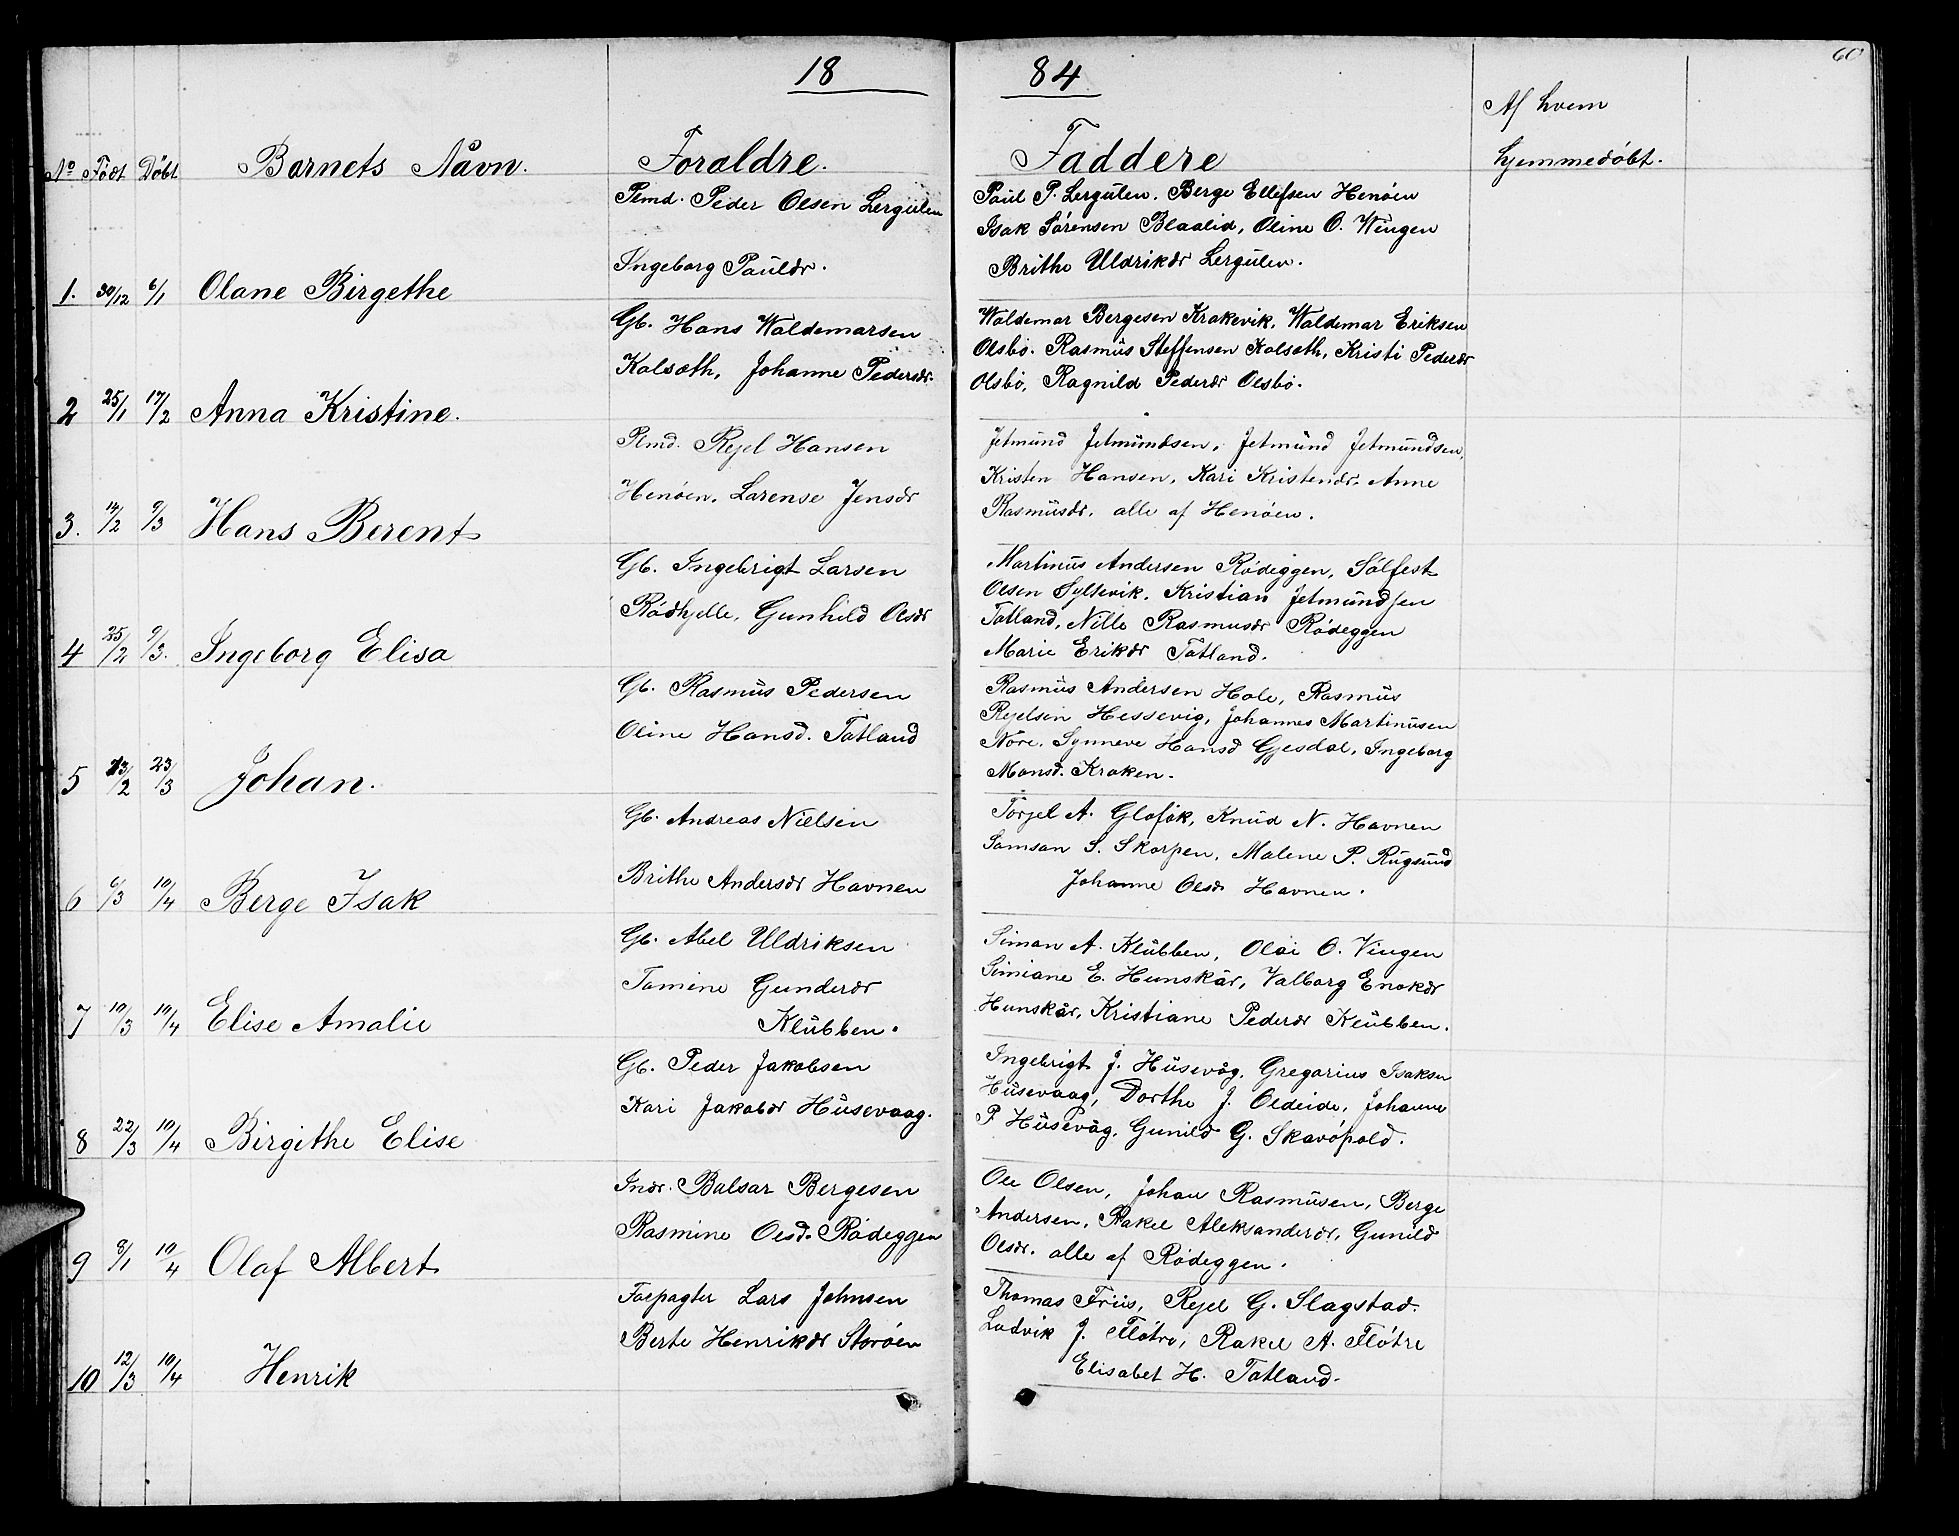 60
18 84
Af hvem
hjemmedöbt.
No Födt Döbt Barnets Navn. Foraldre. Faddere
Plmd. Peder Olsen Lergulen
Ingeborg Pauldr.
1. 30/12 6/1 Olane Birgethe
Paul P. Lergulen. Berge Ellefsen Henöen
Isak Sörensen Blaalid, Oline O. Wingen
Brithe Uldrikdr Lergulen.
Gb. Hans Waldemarsen
Kalsæth, Johanne Pedersdr.
2 25/1 17/2 Anna Kristine.
Waldemar Bergesen Krakevik. Waldemar Eriksen
Olsbö. Rasmus Steffensen Kalsæth, Kristi Pederdr
Olsbö, Ragnild Pederdr Olsbö.
Plmd. Rejel Hansen
Henöen. Larense Jensdr
3. 14/2 9/3 Hans Berent
Jetmund Jetmundsen, Jetmund Jetmundsen,
Kristen Hansen, Kari Kristendr. Anne
Rasmusdr. alle af Henöen.
Gb. Ingebrigt Larsen
Rödhjelle, Gunhild Olsdr
4 25/2 9/3. Ingeborg Elisa
Martinus Andersen Rödeggen, Sölfest
Olsen Syltevik. Kristian Jetmundsen
Totland, Nille Rasmusdr Rödeggen
Marie Erikdr Totland.
Gb. Rasmus Pedersen
Oline Hansd. Totland
5 23/2 23/3 Johan.
Rasmus Andersen Hole, Rasmus
Rejelsen Hessevig, Johannes Martinusen
Nöre, Synneve Hansd Gjesdal, Ingeborg
Monsd. Kroken.
Gb. Andreas Nielsen
Brithe Andersdr Havnen
6 6/3 10/4 Berge Isak
Torjel A. Glofök, Knud N. Havnen
Samsan S. Skorpen, Malene P. Rugsund
Johanne Olsdr Havnen.
Gb. Abel Uldriksen
Tomine Gunderdr
Klubben.
7 10/3 10/4 Elise Amalie
Simon A. Klubben, Olai O. Vingen
Simiane E. Hunskår, Valborg Enokdr
Hunskår, Kristiane Pederdr Klubben.
Gb. Peder Jakobsen
Kari Jakobdr Husevaag.
8 22/3 10/4 Birgithe Elise
Ingebrigt J. Husevåg. Gregorius Isaksen
Husevaag, Dorthe J. Oldeide, Johanne
P Husevåg, Gunild G. Skavöpold.
Indr. Balsar Bergesen
Rasmine Olsd. Rödeggen
9 8/1 10/4 Olaf Albert
Ole Olsen, Johan Rasmusen, Berge
Andersen, Rakel Aleksanderdr, Gunild
Olsdr. alle af Rödeggen.
Forpagter Lars Johnsen
Berte Henrikdr Storöen
10 12/3 10/4 Henrik
Thomas Friis, Rejel G. Slagstad.
Ludvik J. Flötre, Rakel A. Flötre
Elisabet H. Totland.